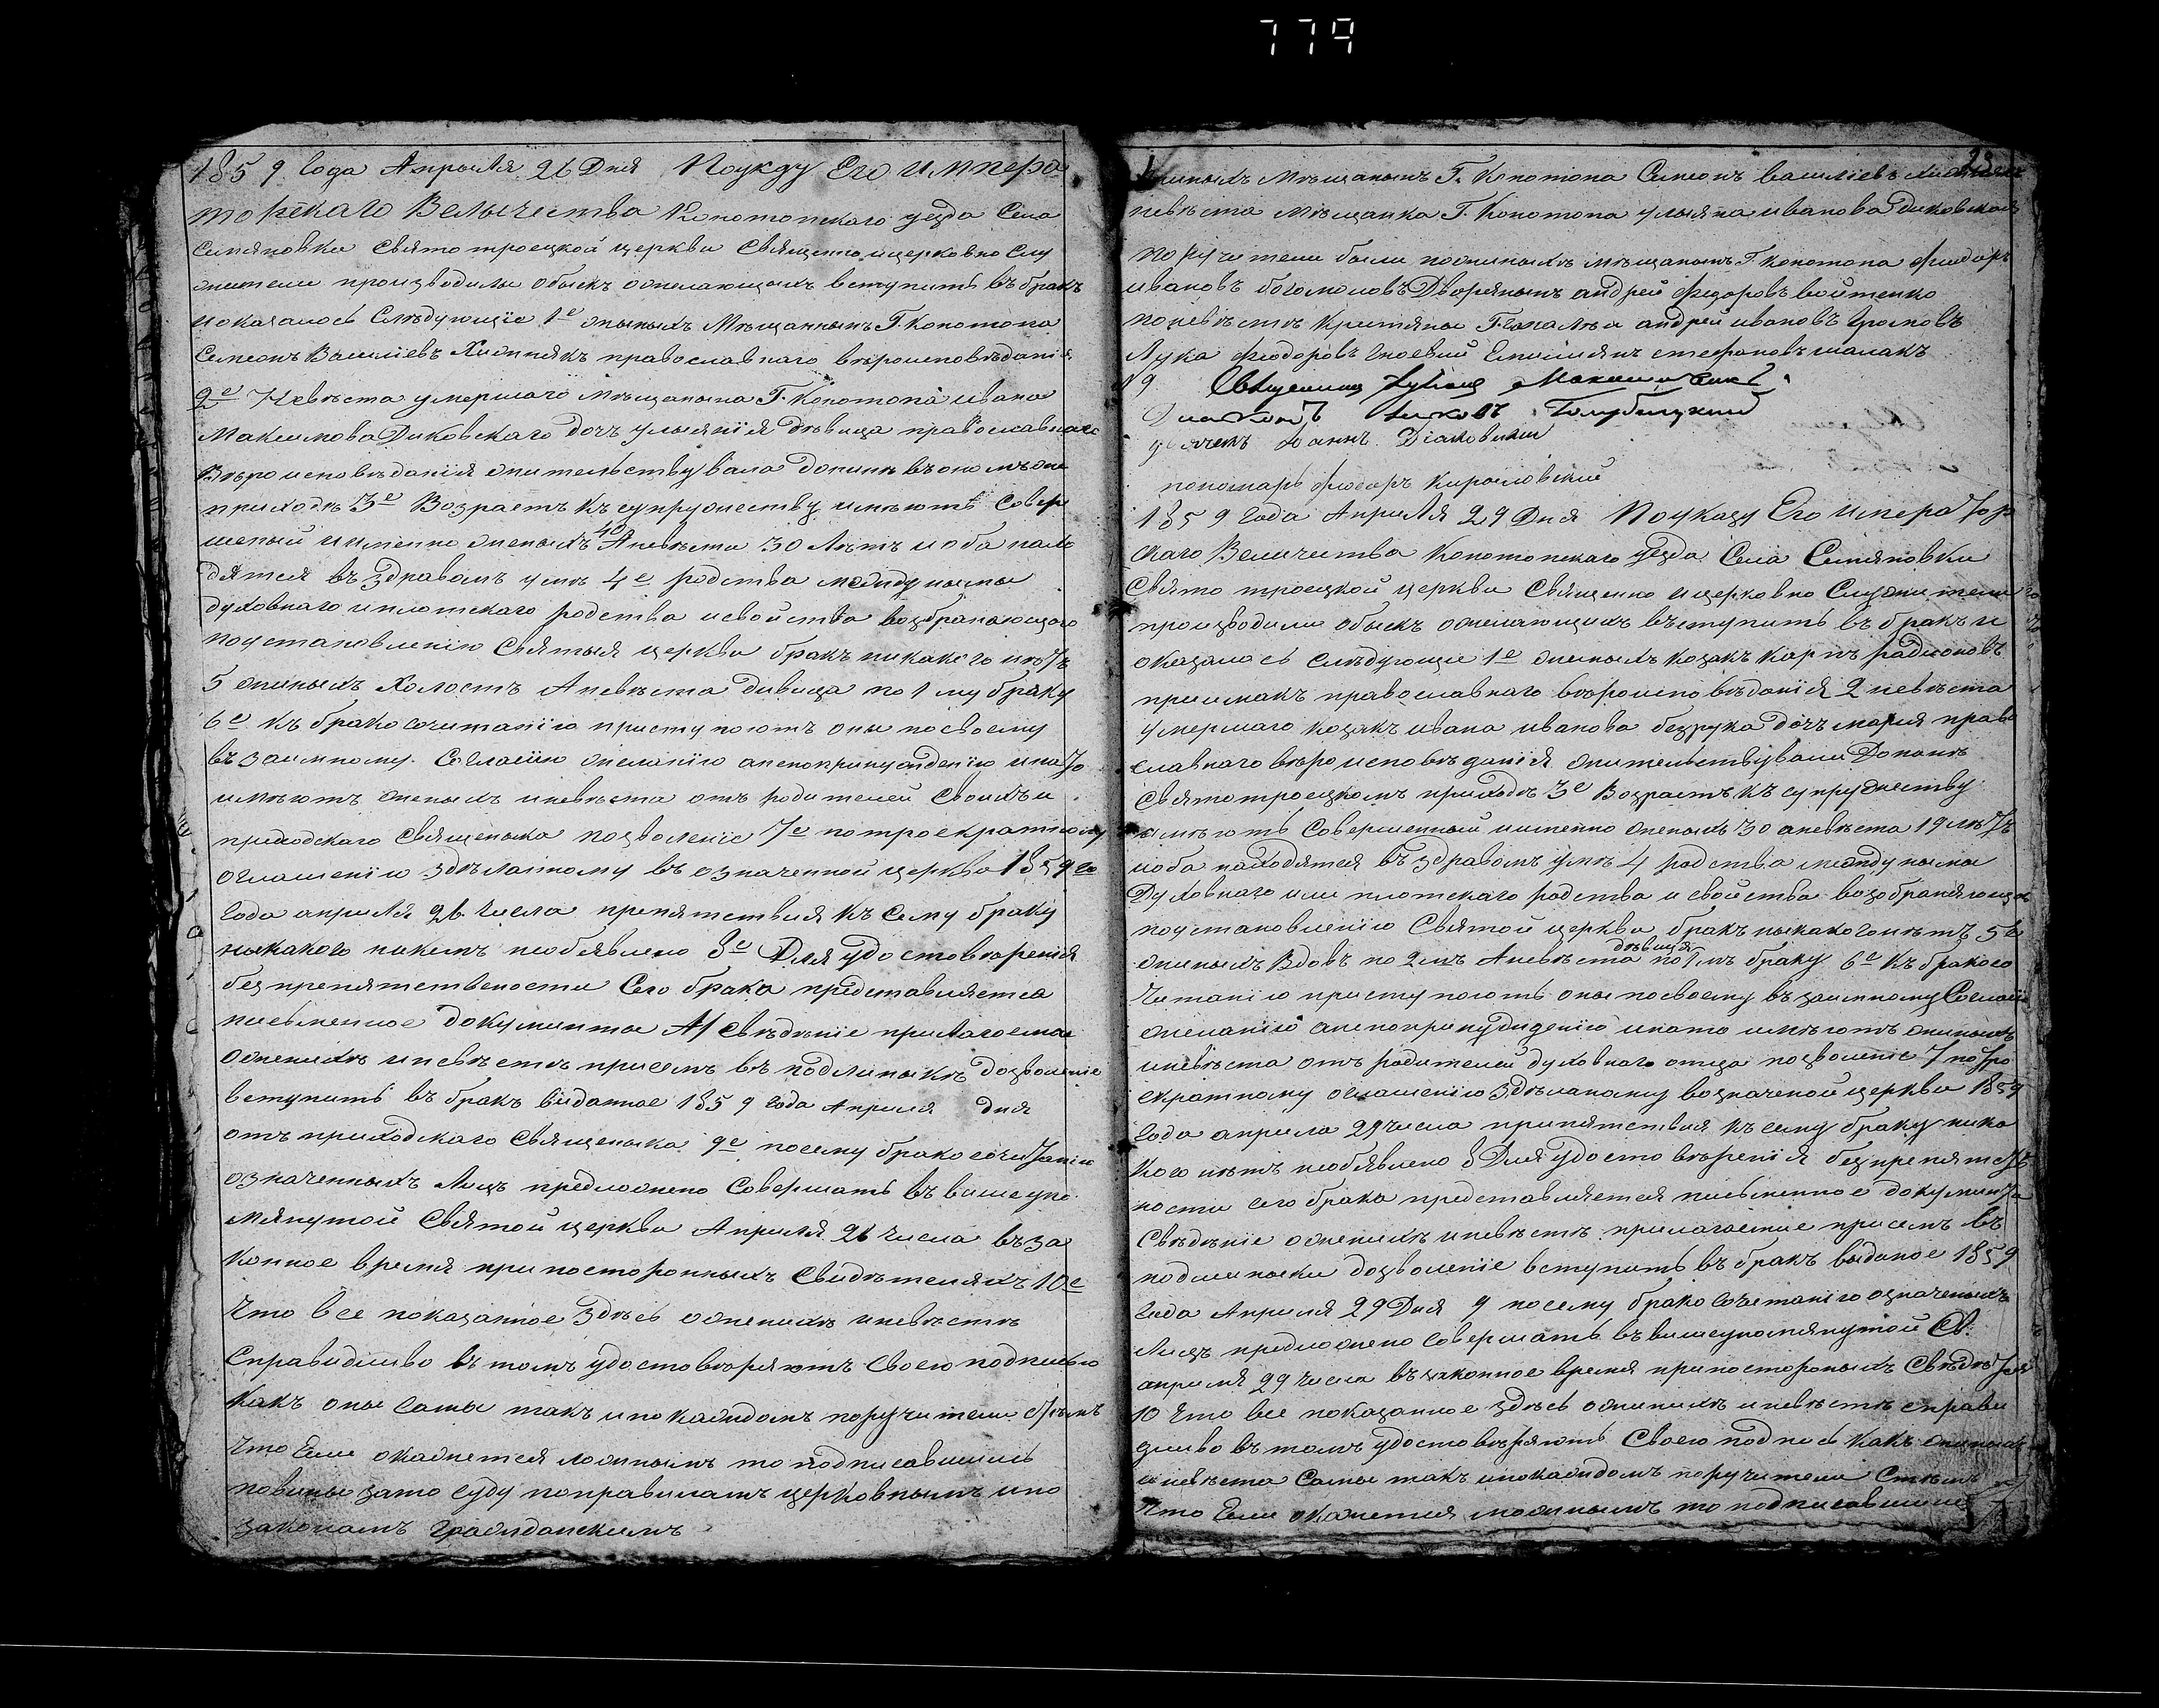 779
1859 года Апрыля 26 Дня Поукзу Его Импера
торскаго Велычества Конотопскаго уезда Села
Семяновки Свято троецкой церкви Священно ицерковно Слу
жители производилы обыск ожелающыхъ вступить въ бракъ
иоказалось Слѣдующіе 1е жыныхъ Мѣщаннынъ Г. Конотопа
Симеонъ Василіевъ православнаго вѣроисповѣданія
2е Невѣста умершаго мѣщанына Г. Конотопа ивана
Максимова Диковскаго дочь улыянія дѣвица православнаго
Вѣроисповѣданія жительствувала донынѣ въ
приходѣ 3е Возрастъ Къ супружеству имѣютъ Совер
шеный иименно женыхъ 40 Аневѣста 30 Лѣтъ иоба нахо
дятся въ здравомъ умѣ 4е родства между нымы
духовнаго иплотскаго родства исвойства возбранающаго
поустановленію Святыя церкви бракъ никакого нѣтъ
5 жиныхъ Холостъ Аневѣста дивица по 1му браку
6е къ брако сочитанію приступоютъ оны посвоему
въ заимному Согласію желанію анепокринуждению инато
имѣютъ женыхъ иневѣста отъ родителей Своихъ и
приходскаго Священыка позволеніе 7е потроекратному
оглашенію здѣланному въ означенной церкви 1859 го
года априля 26 числа препятствия къ Сему браку
ныкакого никемъ необявлено 8е Для удостовѣренія
без препятствености Сего брака представляется
письменное документы А/ Свѣдѣніе прилагаемое
ожених иневѣстѣ присемъ въ подлиныкѣ дозволеніе
вступить въ бракъ виданное 1859 года Априля дня
отъ приходскаго Священыка 9е посему брако сочитанію
означенныхъ Лицъ предложено Совершать въ вишеупо
мянутой Святой церкви Априля 26 числа въ за
конное время при посторонныхъ Свидѣтеляхъ 10е
Что все показанное Здѣсь ожених иневѣстѣ
справидливо въ томъ удостовѣряютъ Своею подписью
Какъ оны самы такъ ипо каждомъ поручители
что Если окажется ложнымъ то подписавшись
повины зато суду поправиламъ церковнымъ ипо
законамъ гражданскимъ
23
жиныхъ Мѣщанынъ Г. Конотопа Симеонъ василіевъ
невѣста Мѣщанка Г. Конотопа улыяна иванова Диковская
поручители были пожиныхѣ мѣщанынъ Г. Конотопа Фиодоръ
ивановъ богомоловъ Дворянынъ андрей Федоровъ войтенко
поневѣстѣ андрей ивановъ Громовъ
Лука Федоровъ Емилиянъ стефановъ
№ 9
Діаконъ Голубицкий
дьячекъ Іоаннъ
пономарь Феодоръ
1859 года Априля 29 Дня Поуказу Его Император
скаго Величества Конотопскаго уезда Села Семяновки
Свято троецкой церкви Священно ицерковно Служители
производили обыскъ ожелающихъ вѣступить въ бракъ и
оказалось слѣдующие 1е жиныхъ козакъ Карпъ радионовъ
приимакъ православнаго вѣроисповѣданія 2 невѣста
умершаго козакъ ивана иванова безрука дочь мария право
славнаго вѣроисповѣданія жительствували Донынѣ
Святотроецкомъ приходѣ 3е Возрастъ Къ супружеству
имѣютъ Совершенный иименно женыхъ 30 аневѣста 19 лѣтъ
иоба находятся въ здравомъ умѣ 4 родства между нымы
Духовнаго или плотскаго родства и свойства возбраняющаго
поустановленію Святой церкви бракъ ныкакого нѣтъ 5е
жиныхъ Вдовъ по 2мъ Аневѣста дѣвиця по1мъ браку 6е къ бракосо
читанію приступоютъ оны посвоему въ заимному Согласію
желанію анепокринуждению инато имѣютъ жиныхъ
иневѣста отъ родителей духовнаго отца позволеніе 7 потро
екратному оглашенію Здѣланому возначеной церкви 1859
года априля 29 числа припятствия къ сему браку ника
кого нѣтъ необявлено 8 Для удостовѣренія безпрепятств
ности сего брака представляется письменное документа
Свѣдѣніе ожених иневѣстѣ прилагаемие присемъ въ
подлиныки дозволеніе вступить въ бракъ выданое 1859
года Априля 29 Дня 9 посему брако сочетаніго означеныхъ
Лицъ предложено совершать въ вишеупомянутой Св.
априля 29 числа въ законное время припостороныхъ Свѣдѣтел
10 что все показанное здѣсь ожиныхѣ иневѣстѣ справи
дливо въ томъ удостовѣряютъ Своею подпись какъ жиныхъ
иневѣста Самы такъ ипокаждомъ поручители Стѣмъ
что Если окажется ложнымъ то подписавшись